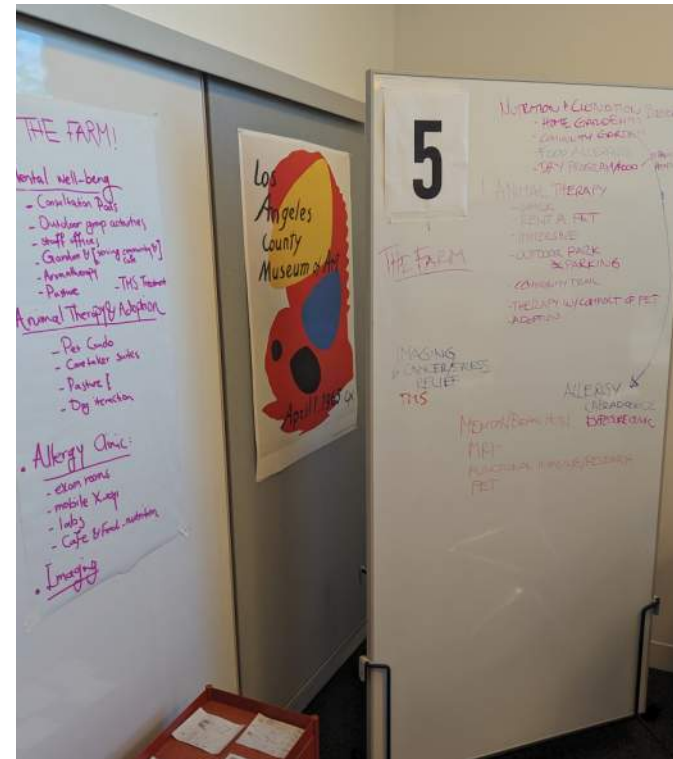 THE FARM!
Mental well-being
- Consultation Pods
- Outdoor group activities
- Staff offices
- Garden
- Aromatherapy
- Pasture - TMS Treatment
Animal Therapy & Adoption
- Pet Condo
- Caretaker suites
- Pasture [
- Dog iteraction
• Allergy Clinic:
- exam rooms
- mobile X-ray
- labs
- Cafe & food - nutrition
• Imaging
Los
Angeles
County
Museum of Art
April 1, 1965
5
THE FARM
IMAGING
CANCER/STRESS
RELIEF
TMS
NUTRITION &
- HOME GARDENING
- COMMUNITY GARDEN
- FOOD
- DAY PROGRAM/FOOD
ANIMAL THERAPY
- RENT A PET
- OUTDOOR PARK
& PARKING
COMMUNITY TRAIL
- THERAPY W/COMFORT OF PET
- ADOPTION
ALLERGY
EXPOSURE CLINIC
MRI
FUNCTIONAL IMAGING/RESEARCH
PET